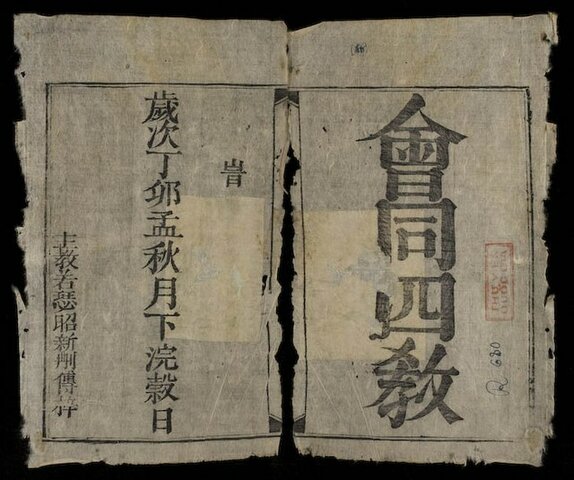 R 680
會同四教
旹
歲次丁卯孟秋月下浣穀日
主教若瑟昭新刪傳梓